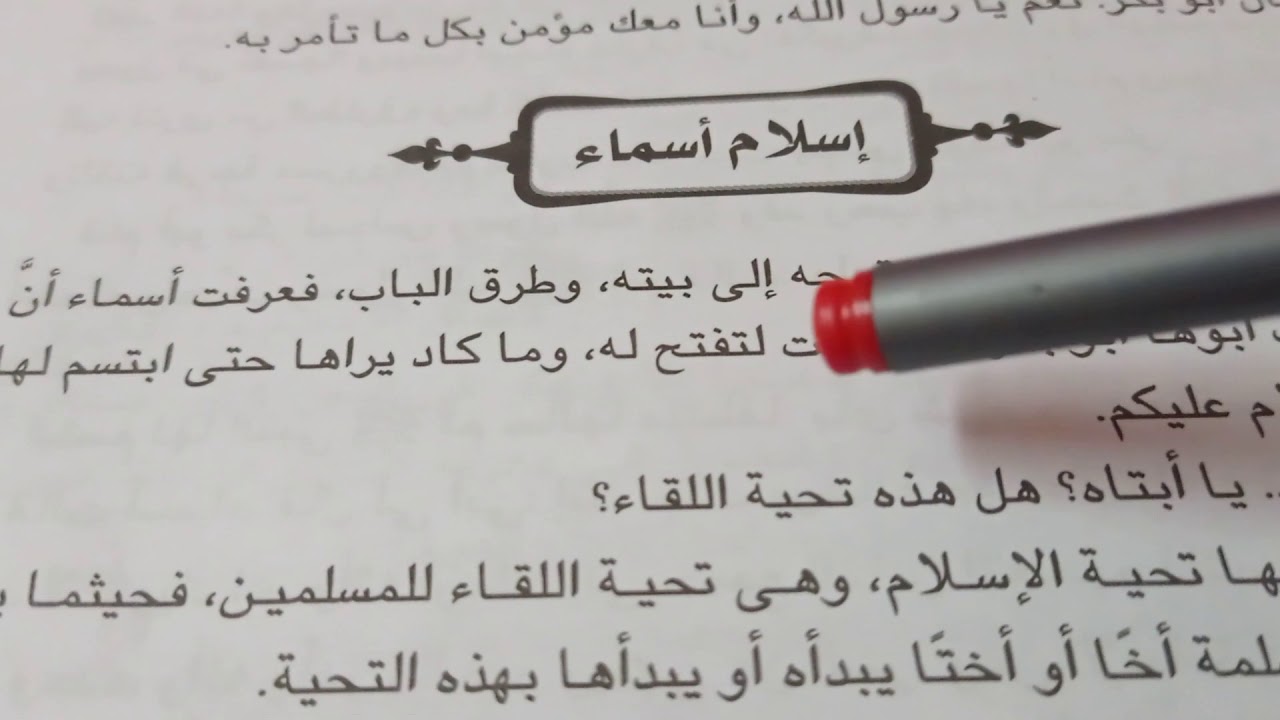 أبو بكر: نعم يا رسول الله، وأنا معك مؤمن بكل ما تأمر به.
إسلام أسماء
إلى بيته، وطرق الباب، فعرفت أسماء أنَّ
أبوها لتفتح له، وما كاد يراها حتى ابتسم لها
عليكم.
يا أبتاه؟ هل هذه تحية اللقاء؟
تحية الإسلام، وهى تحية اللقاء للمسلمين، فحيثما
أخًا أو أختًا يبدأه أو يبدأها بهذه التحية.